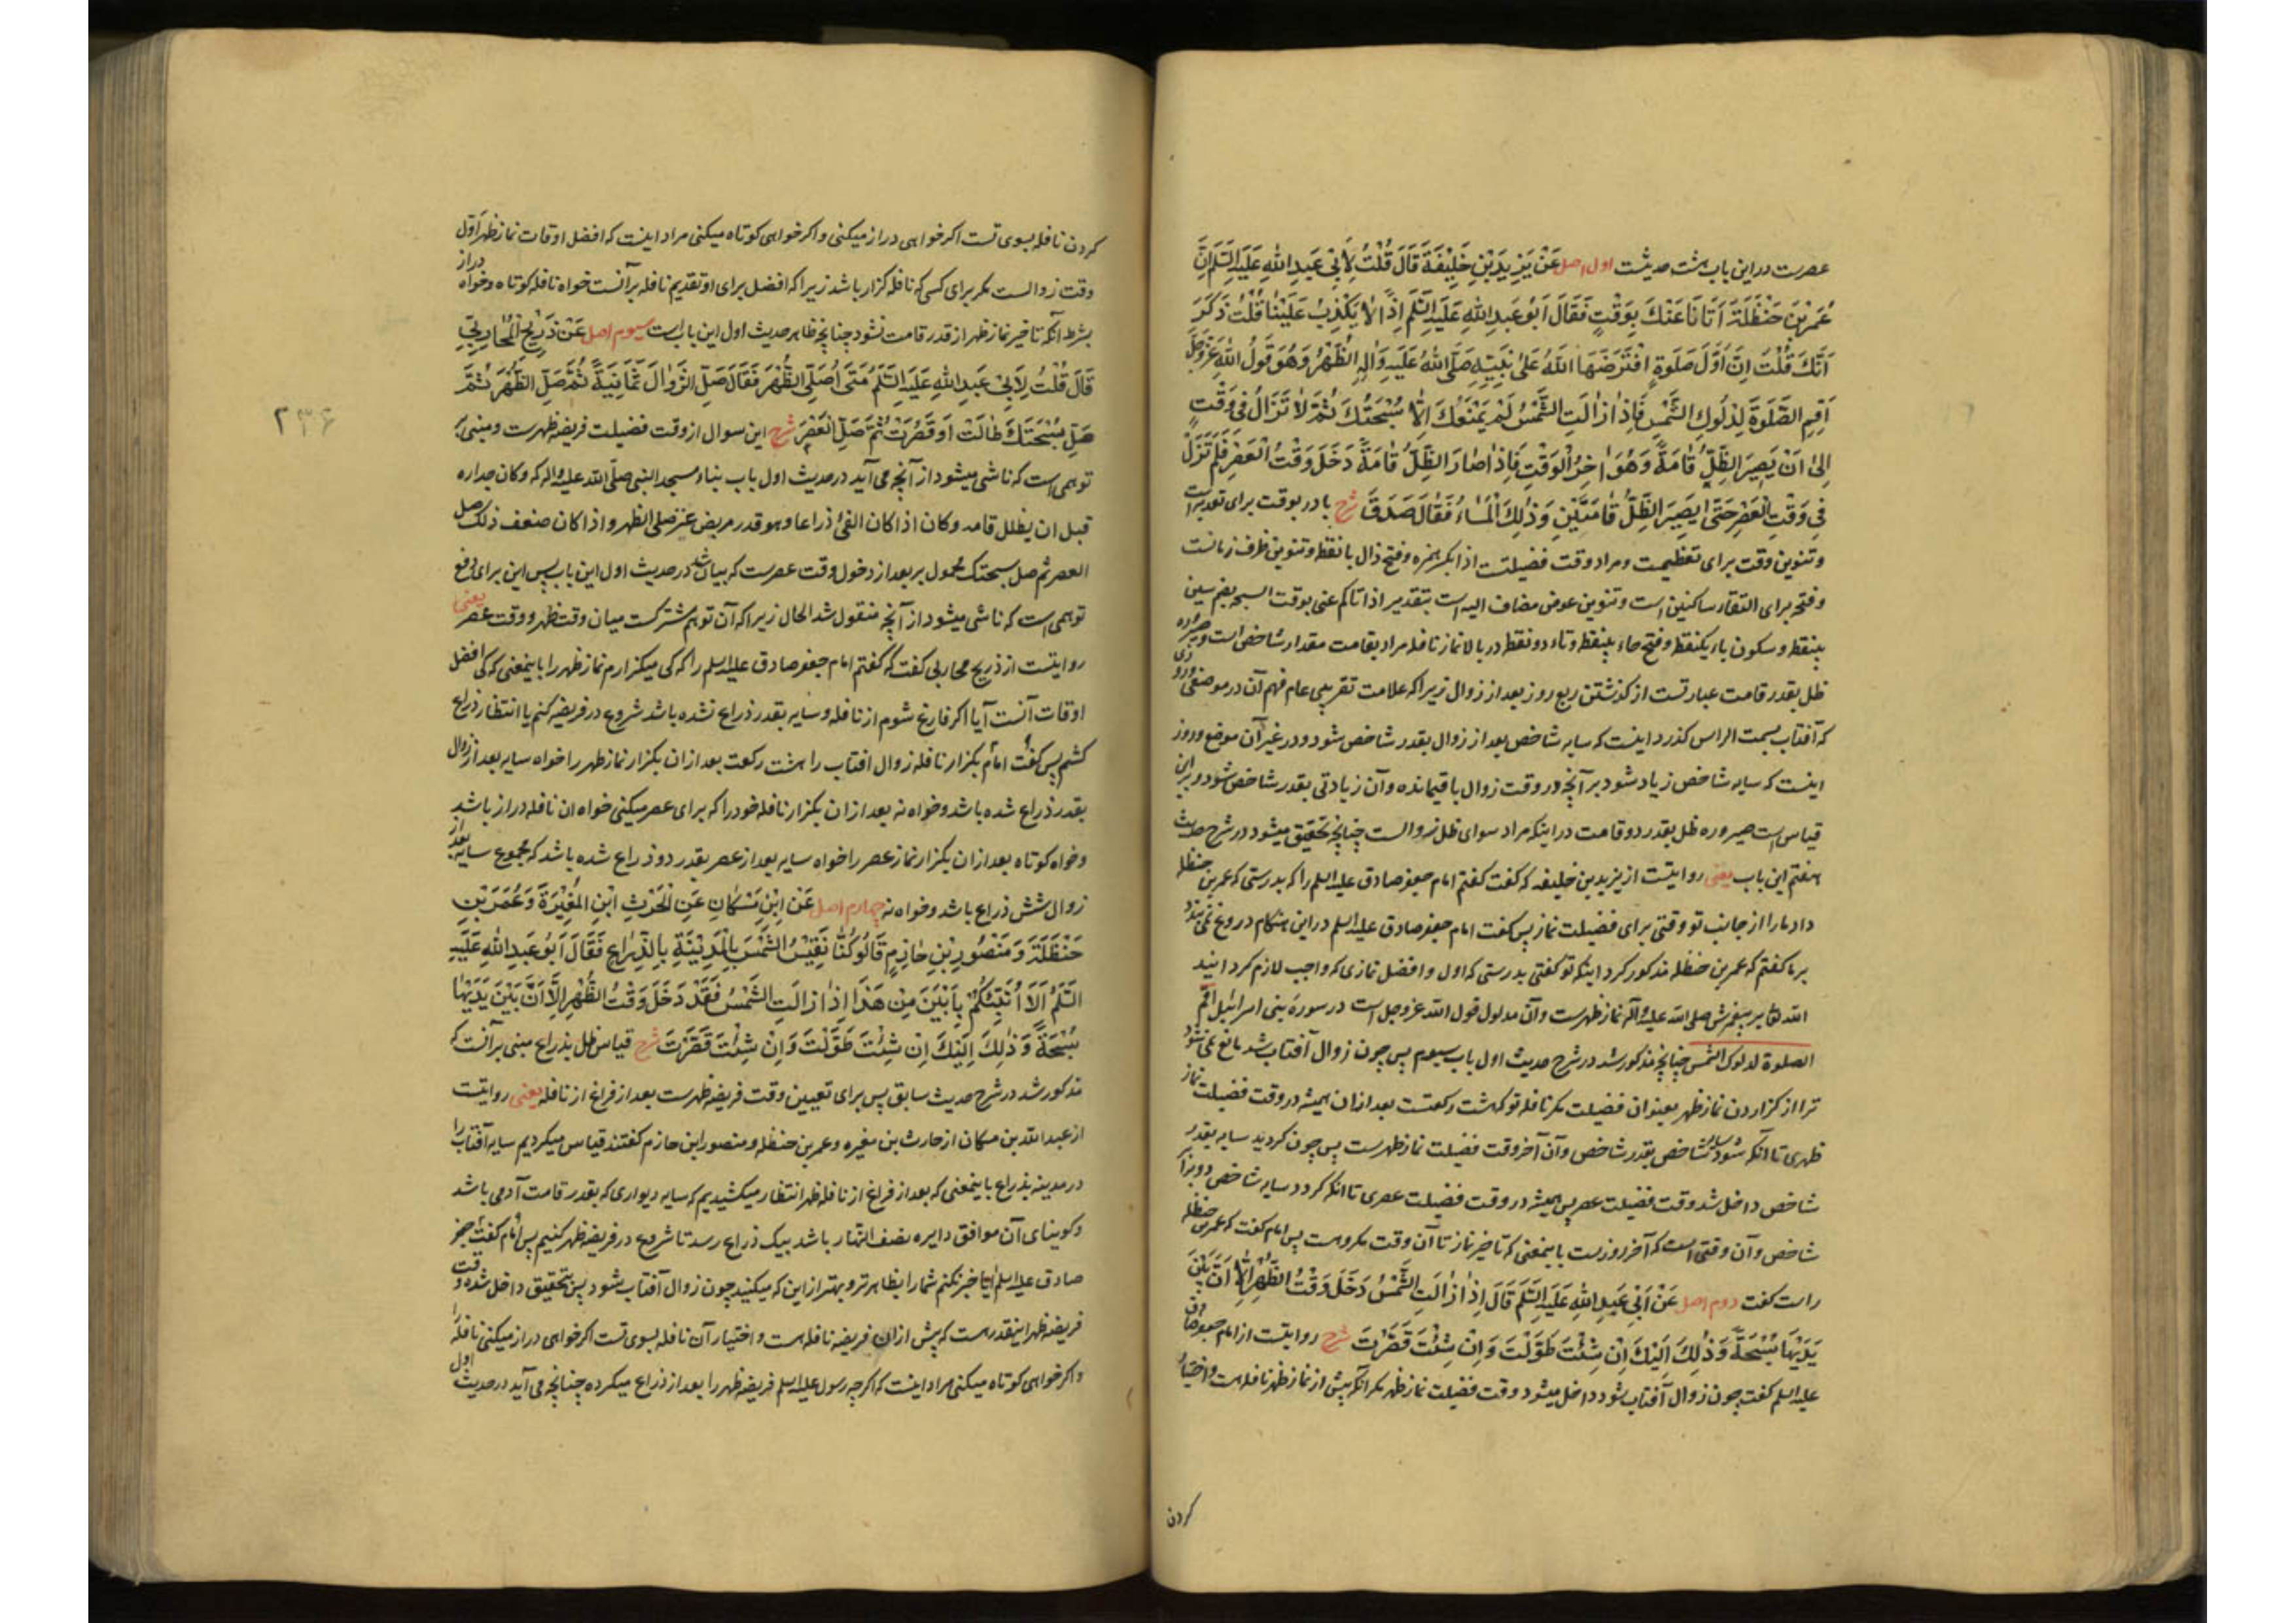 عصرست در این باب هشت حدیثست اول اصل عَنْ یَزِیدَ بْنِ خَلِیفَةَ قَالَ قُلْتُ لِاَبِی عَبْدِ اللهِ عَلَیْهِ السَّلَمُ اِنَّ
عُمَرَ بْنَ حَنْظَلَةَ اَتَانَا عَنْكَ بِوَقْتٍ فَقَالَ اَبُو عَبْدِ اللهِ عَلَیْهِ السَّلَمُ اِذًا لَا یَکْذِبُ عَلَیْنَا قُلْتُ ذَکَرَ
اَنَّكَ قُلْتَ اِنَّ اَوَّلَ صَلَوةٍ افْتَرَضَهَا اللهُ عَلَی نَبِیِّهِ صَلَّی اللهُ عَلَیْهِ وَآلِهِ الظُّهْرُ وَهُوَ قَوْلُ اللهِ عَزَّ وَجَلَّ
اَقِمِ الصَّلَوةَ لِدُلُوكِ الشَّمْسِ فَاِذَا زَالَتِ الشَّمْسُ لَمْ یَمْنَعْكَ اِلَّا سُبْحَتُكَ ثُمَّ لَا تَزَالُ فِی وَقْتٍ
اِلَی اَنْ یَصِیرَ الظِّلُّ قَامَةً وَهُوَ آخِرُ الْوَقْتِ فَاِذَا صَارَ الظِّلُّ قَامَةً دَخَلَ وَقْتُ الْعَصْرِ فَلَمْ تَزَلْ
فِی وَقْتِ الْعَصْرِ حَتَّی یَصِیرَ الظِّلُّ قَامَتَیْنِ وَذَلِكَ الْمَسَاءُ فَقَالَ صَدَقَ شرح با در بوقت برای تعدیه است
و تنوین وقت برای تعظیمست و مراد وقت فضیلتست اذا بکسر همزه و فتح ذال با نقطه و تنوین ظرف زمانست
و فتحه برای التقاء ساکنین است و تنوین عوض مضاف الیه است بتقدیر اذ اتاکم عنی بوقت السبحه بضم سین
بینقطه و سکون باء یکنقطه و فتح حاء بینقطه و تاء دو نقطه در بالا نماز نافله مراد بقامت مقدار شاخص است و صیروره
ظل بقدر قامت عبارتست از گذشتن ربع روز بعد از زوال زیرا که علامت تقریبی عام فهم آن در موضعی و روزی
که آفتاب بسمت الراس گذرد اینست که سایه شاخص بعد از زوال بقدر شاخص شود و در غیر آن موضع و روز
اینست که سایه شاخص زیاد شود بر آنچه در وقت زوال باقیمانده و آن زیادتی بقدر شاخص شود و برین
قیاس است صیروره ظل بقدر دو قامت در اینکه مراد سوای ظل زوالست چنانچه تحقیق میشود در شرح حدیث
هفتم این باب یعنی روایتست از یزید بن خلیفه که گفت گفتم امام جعفر صادق علیه السلم را که بدرستی که عمر بن حنظله
داد ما را از جانب تو وقتی برای فضیلت نماز پس گفت امام جعفر صادق علیه السلم در این هنگام دروغ نمی بندد
بر ما گفتم که عمر بن حنظله مذکور کرد اینکه تو گفتی بدرستی که اول و افضل نمازی که واجب لازم گردانید
الله تعالی بر پیغمبرش صلی الله علیه و آله نماز ظهرست و آن مدلول قول الله عز و جل است در سوره بنی اسرائیل اقم
الصلوة لدلوك الشمس چنانچه مذکور شد در شرح حدیث اول باب سیوم پس چون زوال آفتاب شد مانع نمی شود
ترا از گزاردن نماز ظهر بعنوان فضیلت مگر نافله تو که هشت رکعتست بعد از ان همیشه در وقت فضیلت نماز
ظهری تا آنکه شود سایه شاخص بقدر شاخص و آن آخر وقت فضیلت نماز ظهرست پس چون گردید سایه بقدر
شاخص داخل شد وقت فضیلت عصر پس همیشه در وقت فضیلت عصری تا آنکه گردد سایه شاخص دو برابر
شاخص و آن وقتی است که آخر روزست باینمعنی که تاخیر نماز تا آن وقت مکروهست پس امام گفت که عمر بن حنظله
راست گفت دوم اصل عَنْ اَبِی عَبْدِ اللهِ عَلَیْهِ السَّلَمُ قَالَ اِذَا زَالَتِ الشَّمْسُ دَخَلَ وَقْتُ الظُّهْرِ اِلَّا اَنَّ بَیْنَ
یَدَیْهَا سُبْحَةً وَذَلِكَ اِلَیْكَ اِنْ شِئْتَ طَوَّلْتَ وَاِنْ شِئْتَ قَصَّرْتَ شرح روایتست از امام جعفر صادق
علیه السلم گفت چون زوال آفتاب شود داخل میشود وقت فضیلت نماز ظهر مگر آنکه پیش از نماز ظهر نافله است و اختیار
کردن
کردن نافله بسوی تست اگر خواهی دراز میکنی و اگر خواهی کوتاه میکنی مراد اینست که افضل اوقات نماز ظهر اول
وقت زوالست مگر برای کسی که نافله گزار باشد زیرا که افضل برای او تقدیم نافله بر آنست خواه نافله کوتاه و خواه دراز
بشرط آنکه تاخیر نماز ظهر از قدر قامت نشود چنانچه ظاهر حدیث اول این باب است سیوم اصل عَنْ ذَرِیحٍ الْمُحَارِبِیِّ
قَالَ قُلْتُ لِاَبِی عَبْدِ اللهِ عَلَیْهِ السَّلَمُ مَتَی اُصَلِّی الظُّهْرَ فَقَالَ صَلِّ الزَّوَالَ ثَمَانِیَةً ثُمَّ صَلِّ الظُّهْرَ ثُمَّ
صَلِّ سُبْحَتَكَ طَالَتْ اَوْ قَصُرَتْ ثُمَّ صَلِّ الْعَصْرَ شرح این سوال از وقت فضیلت فریضه ظهرست و مبنی بر
توهمی است که ناشی میشود از آنچه می آید در حدیث اول باب بناء مسجد النبی صلی الله علیه و اله که وکان جداره
قبل ان یظلل قامه وکان اذا کان الفئ ذراعا وهو قدر مربض عنز صلی الظهر واذا کان ضعف ذلك صلی
العصر ثم صل سبحتك محمول بر بعد از دخول وقت عصرست که بیان شد در حدیث اول این باب پس این برای دفع
توهمی است که ناشی میشود از آنچه منقول شد الحال زیرا که آن توهم مشترکست میان وقت ظهر و وقت عصر یعنی
روایتست از ذریح محاربی گفت که گفتم امام جعفر صادق علیه السلم را که کی میگزارم نماز ظهر را باینمعنی که کی افضل
اوقات آنست آیا اگر فارغ شوم از نافله و سایه بقدر ذراع نشده باشد شروع در فریضه کنم یا انتظار ذراع
کشم پس گفت امام بگزار نافله زوال افتاب را هشت رکعت بعد از ان بگزار نماز ظهر را خواه سایه بعد از زوال
بقدر ذراع شده باشد و خواه نه بعد از ان بگزار نافله خود را که برای عصر میکنی خواه ان نافله دراز باشد
و خواه کوتاه بعد از ان بگزار نماز عصر را خواه سایه بعد از عصر بقدر دو ذراع شده باشد که مجموع سایه بعد از
زوال شش ذراع باشد و خواه نه چهارم اصل عَنِ ابْنِ مُسْکَانَ عَنِ الْحَرْثِ ابْنِ الْمُغِیرَةِ وَعُمَرَ بْنِ
حَنْظَلَةَ وَمَنْصُورِ بْنِ حَازِمٍ قَالُوا کُنَّا نَقِیسُ الشَّمْسَ بِالْمَدِینَةِ بِالذِّرَاعِ فَقَالَ اَبُو عَبْدِ اللهِ عَلَیْهِ
السَّلَمُ اَلَا اُنَبِّئُکُمْ بِاَبْیَنَ مِنْ هَذَا اِذَا زَالَتِ الشَّمْسُ فَقَدْ دَخَلَ وَقْتُ الظُّهْرِ اِلَّا اَنَّ بَیْنَ یَدَیْهَا
سُبْحَةً وَذَلِكَ اِلَیْكَ اِنْ شِئْتَ طَوَّلْتَ وَاِنْ شِئْتَ قَصَّرْتَ شرح قیاس ظل بذراع مبنی بر آنست که
مذکور شد در شرح حدیث سابق پس برای تعیین وقت فریضه ظهرست بعد از فراغ از نافله یعنی روایتست
از عبد الله بن مسکان از حارث بن مغیره و عمر بن حنظله و منصور ابن حازم گفتند قیاس میکردیم سایه آفتاب را
در مدینه بذراع باینمعنی که بعد از فراغ از نافله ظهر انتظار میکشیدیم که سایه دیواری که بقدر قامت آدمی باشد
و کوینای آن موافق دایره نصف النهار باشد بیک ذراع رسد تا شروع در فریضه ظهر کنیم پس امام گفت جعفر
صادق علیه السلم ایا خبر نکنم شما را بظاهرتر و بهتر از این که میکنید چون زوال آفتاب شود پس بتحقیق داخل شده وقت
فریضه ظهر اینقدر هست که پیش از ان فریضه نافله هست و اختیار آن نافله بسوی تست اگر خواهی دراز میکنی نافله را
و اگر خواهی کوتاه میکنی مراد اینست که اگر چه رسول علیه السلم فریضه ظهر را بعد از ذراع میکرده چنانچه می آید در حدیث اول
۲۳۶